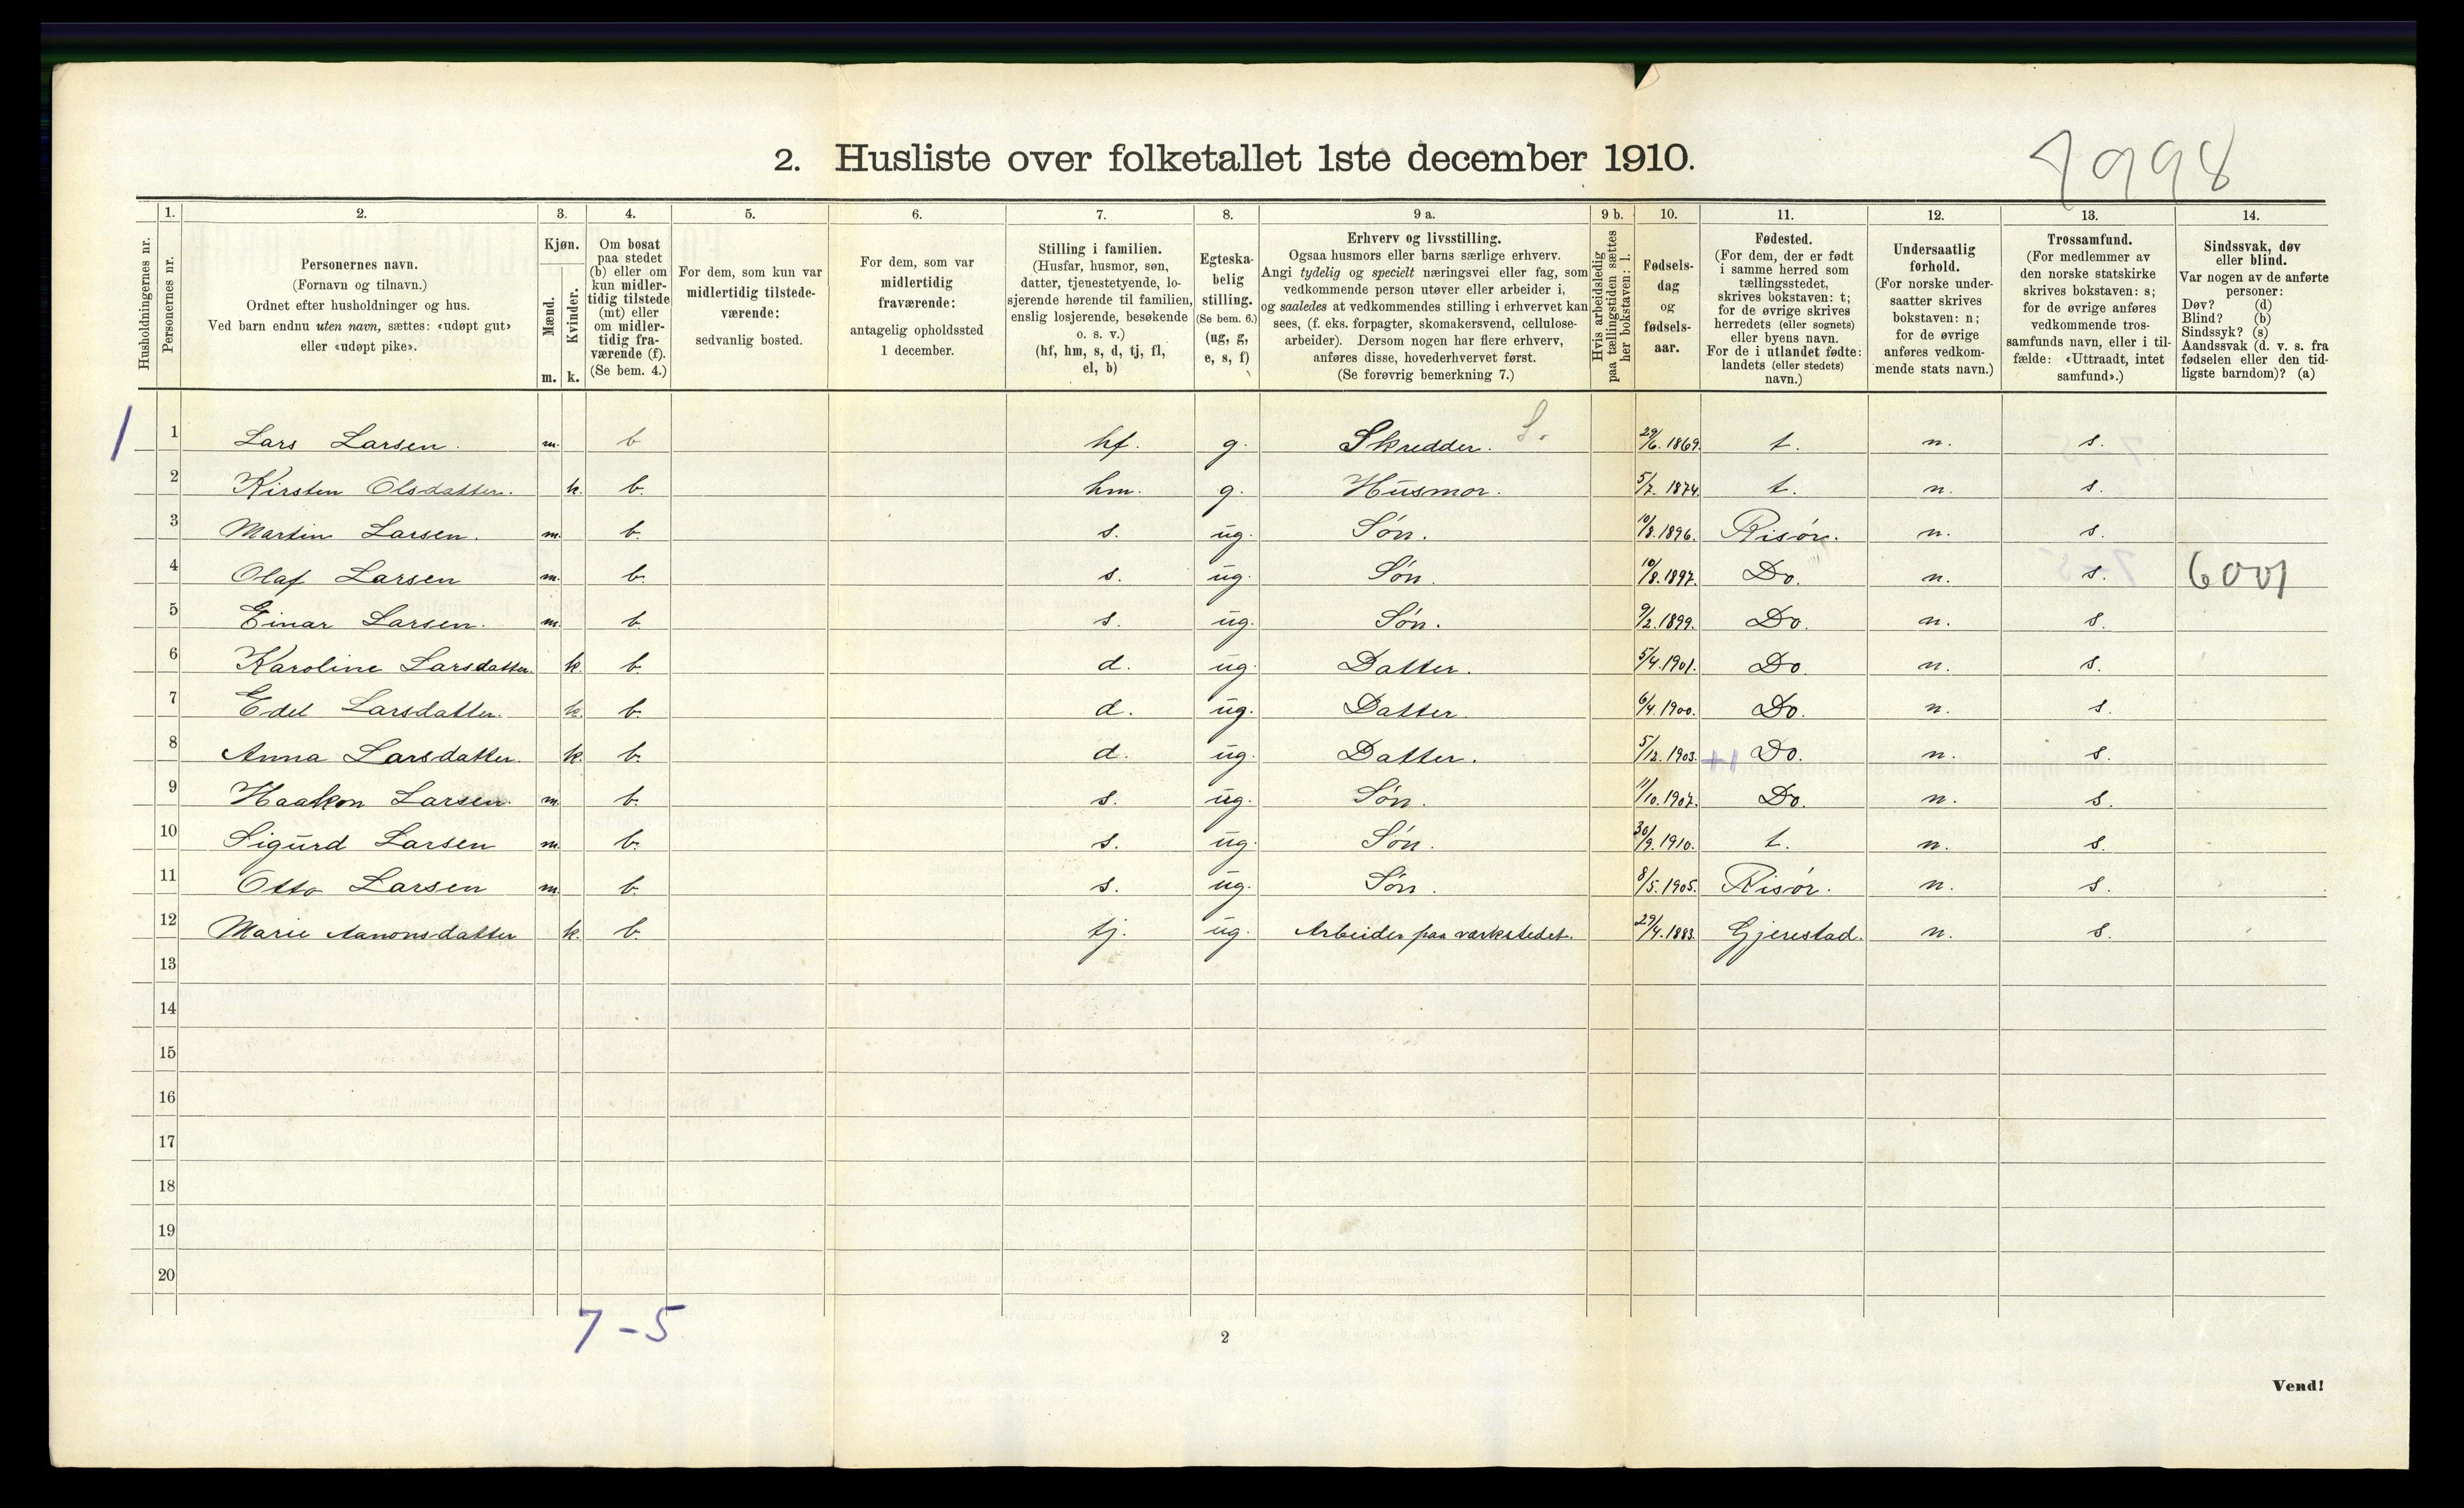 2. Husliste over folketallet 1ste december 1910.
1. 2. 3. 4. 5. 6. 7. 8. 9 a. 9 b. 10. 11. 12. 13. 14.
Husholdningernes nr.
Personernes nr.
Personernes navn.
(Fornavn og tilnavn.)
Ordnet efter husholdninger og hus.
Ved barn endnu uten navn, sættes: «udøpt gut»
eller «udøpt pike».
Kjøn.
Mænd.
Kvinder.
m. k.
Om bosat
paa stedet
(b) eller om
kun midler-
tidig tilstede
(mt) eller
om midler-
tidig fra-
værende (f).
(Se bem. 4.)
For dem, som kun var
midlertidig tilstede-
værende:
sedvanlig bosted.
For dem, som var
midlertidig
fraværende:
antagelig opholdssted
1 december.
Stilling i familien.
(Husfar, husmor, søn,
datter, tjenestetyende, lo-
sjerende hørende til familien,
enslig losjerende, besøkende
o. s. v.)
(hf, hm, s, d, tj, fl,
el, b)
Egteska-
belig
stilling.
(Se bem. 6.)
(ug, g,
e, s, f)
Erhverv og livsstilling.
Ogsaa husmors eller barns særlige erhverv.
Angi tydelig og specielt næringsvei eller fag, som
vedkommende person utøver eller arbeider i,
og saaledes at vedkommendes stilling i erhvervet kan
sees, (f. eks. forpagter, skomakersvend, cellulose-
arbeider). Dersom nogen har flere erhverv,
anføres disse, hovederhvervet først.
(Se forøvrig bemerkning 7.)
Hvis arbeidsledig
paa tællingstiden sættes
her bokstaven: l.
Fødsels-
dag
og
fødsels-
aar.
Fødested.
(For dem, der er født
i samme herred som
tællingsstedet,
skrives bokstaven: t;
for de øvrige skrives
herredets (eller sognets)
eller byens navn.
For de i utlandet fødte:
landets (eller stedets)
navn.)
Undersaatlig
forhold.
(For norske under-
saatter skrives
bokstaven: n;
for de øvrige
anføres vedkom-
mende stats navn.)
Trossamfund.
(For medlemmer av
den norske statskirke
skrives bokstaven: s;
for de øvrige anføres
vedkommende tros-
samfunds navn, eller i til-
fælde: «Uttraadt, intet
samfund».)
Sindssvak, døv
eller blind.
Var nogen av de anførte
personer:
Døv? (d)
Blind? (b)
Sindssyk? (s)
Aandssvak (d. v. s. fra
fødselen eller den tid-
ligste barndom)? (a)
1 1 Lars Larsen. m. b hf. g. Skredder. S. 29/6. 1869. t. n. s.
2 Kirsten Olsdatter. k. b. hm. g. Husmor. 5/7. 1874. t. n. s.
3 Martin Larsen. m. b. s. ug. Søn. 10/8. 1896. Risør. n. s.
4 Olaf Larsen m. b. s. ug. Søn. 10/8. 1897. Do. n. s. 6001
5 Einar Larsen. m. b. s. ug. Søn. 9/2. 1899. Do. n. s.
6 Karoline Larsdatter. k. b. d. ug. Datter. 5/4. 1901. Do n. s.
7 Edel Larsdatter. k. b. d. ug. Datter. 6/4. 1900. Do. n. s.
8 Anna Larsdatter. k. b. d. ug. Datter. 5/12. 1903. Do. n. s.
9 Haakon Larsen. m. b. s. ug. Søn. 11/10. 1907. Do. n. s.
10 Sigurd Larsen m. b. s. ug. Søn. 30/9. 1910. t. n. s.
11 Otto Larsen m. b. s. ug. Søn. 8/5. 1905. Risør. n. s.
12 Marie Aanonsdatter k. b. tj. ug. Arbeider paa værkstedet. 29/4. 1883. Gjerestad. n. s.
13
14
15
16
17
18
19
20
7 - 5
2
Vend!